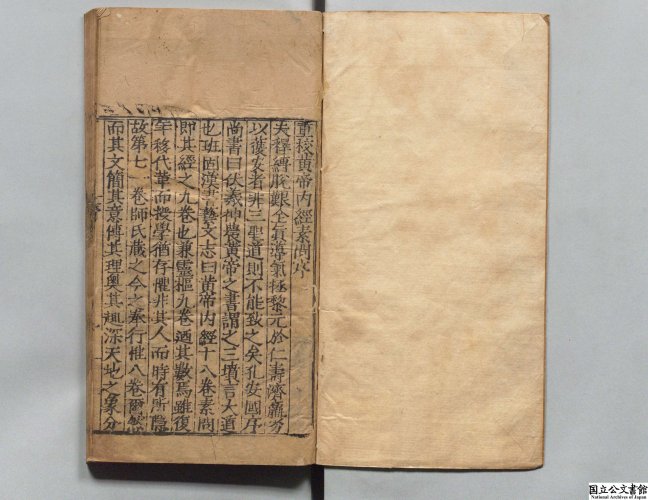 重校黄帝内經素問序
夫釋縛脫艱全真導氣極黎元於仁壽濟羸劣
以獲安者非三聖道則不能致之矣孔安國序
尚書曰伏羲神農黄帝之書謂之三墳言大道
也班固漢書藝文志曰黄帝内經十八卷素問
即其經之九卷也兼靈樞九卷廼其數焉雖復
年移代革而授學猶存懼非其人而時有所隱
故第七一卷師氏藏之今之奉行惟八卷爾然
而其文簡其意博其理奧其趣深天地之象分
国立公文書館
National Archives of Japan